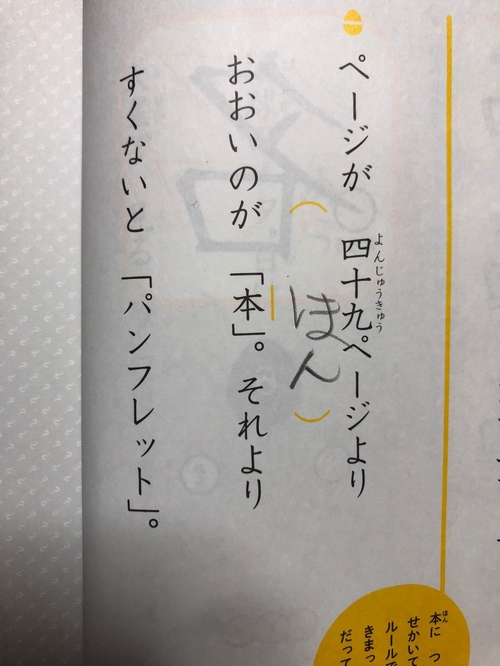 ページが四十九ページより
よんじゅうきゅう
(ほん)
おおいのが「本」。それより
すくないと「パンフレット」。
本に つ
ほん
せかいて
ルールで
きまっ
だって